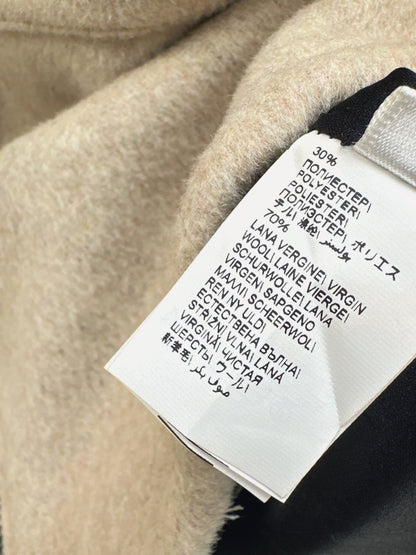 30%
ПОЛИЕСТЕР\
POLYESTER\
POLIESTER\
ПОЛИЭСТЕР\
ポリエス
テル\ 涤纶\ بوليستر
70%
LANA VERGINE\ VIRGIN
WOOL\ LAINE VIERGE\
SCHURWOLLE\ LANA
VIRGEN\ SAPGENO
MAVVI\ SCHEERWOL\
REN NY ULD\
ЕСТЕСТВЕНА ВЪЛНА\
STŘIŽNÍ VLNA\ LANĂ
VIRGINĂ\ ЧИСТАЯ
ШЕРСТЬ\ ウール\
新羊毛\ صوف بكر